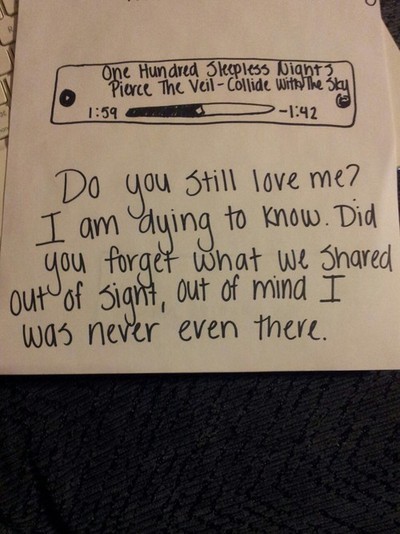 One Hundred Sleepless Nights
Pierce The Veil - Collide With The Sky
1:59
-1:42
Do you still love me?
I am dying to know. Did
you forget what we shared
out of sight, out of mind I
was never even there.